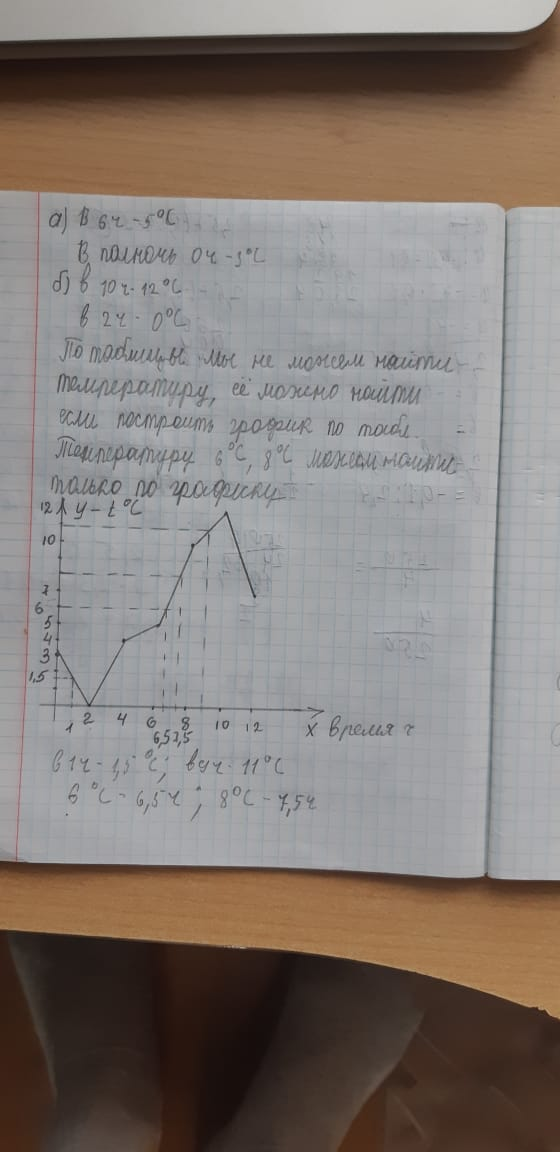 а) В 6ч - 5°C
В полночь 0ч - 3°C
б) в 10ч - 12°C
в 2ч - 0°C
По таблицы мы не можем найти
температуру, её можно найти
если построить график по табл.
Температуру 6°C, 8°C можем найти
только по графику
12 y - t°C
10
7
6
5
4
3
1,5
1 2 4 6 8 10 12 x время ч
6,5 7,5
в 1ч - 1,5°C; в 9ч - 11°C
6°C - 6,5ч; 8°C - 7,5ч